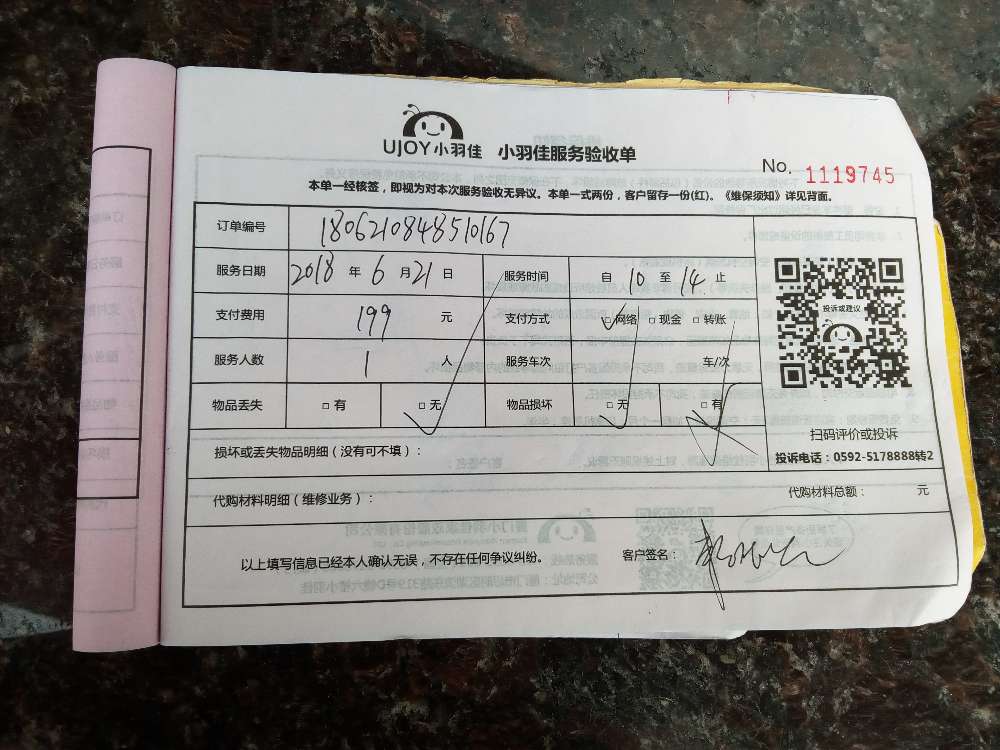 UJOY小羽佳 小羽佳服务验收单
No. 1119745
本单一经核签，即视为对本次服务验收无异议。本单一式两份，客户留存一份(红)。《维保须知》详见背面。
订单编号 1806210848510167
服务日期 2018 年 6 月 21 日 服务时间 自 10 至 14 止
支付费用 199 元 支付方式 □网络 □现金 □转账
服务人数 1 人 服务车次 车/次
物品丢失 □有 □无 物品损坏 □无 □有
投诉或建议
扫码评价或投诉
投诉电话：0592-5178888转2
损坏或丢失物品明细（没有可不填）：
代购材料明细（维修业务）： 代购材料总额： 元
以上填写信息已经本人确认无误，不存在任何争议纠纷。 客户签名：